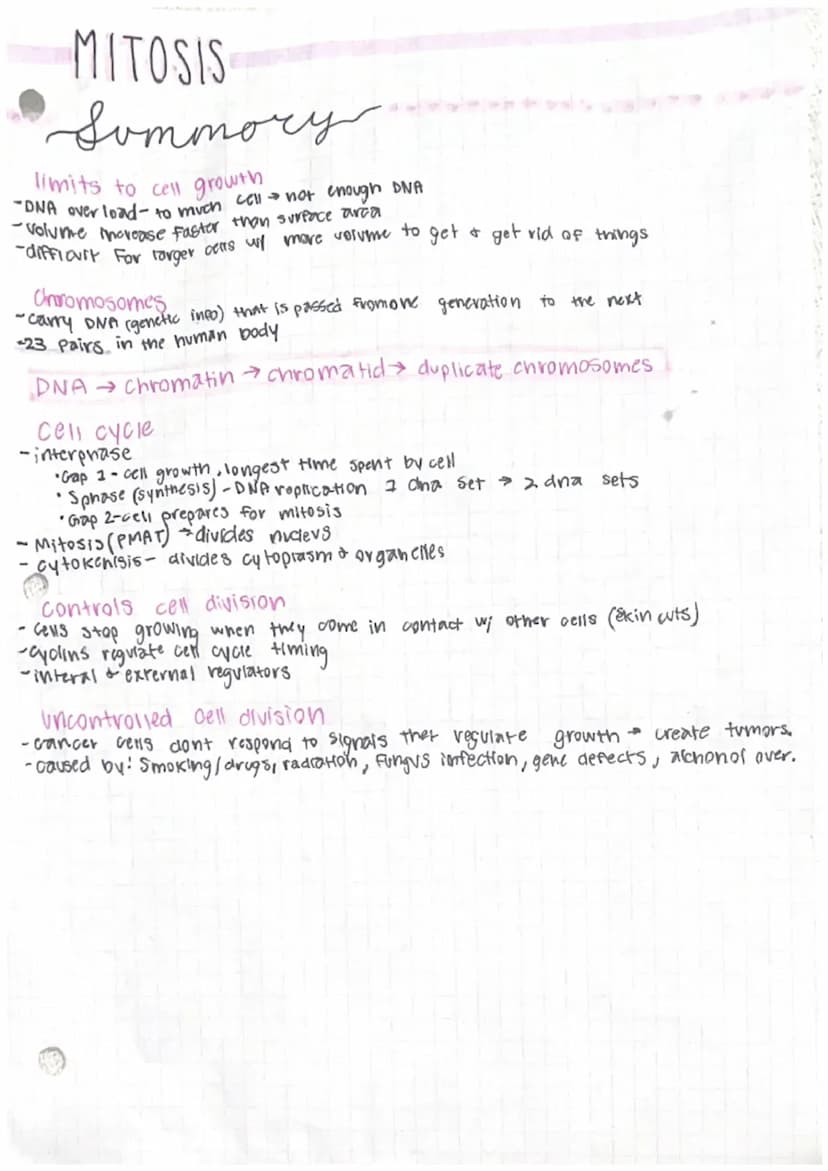 MITOSIS
Summory
limits to cell growth
-DNA over load- to much cell → not enough DNA
-volume increase faster than surface area
-difficult for larger cells w/ more volume to get & get rid of things
Chromosomes
-carry DNA (genetic info) that is passed from one generation to the next
-23 pairs in the human body
DNA → chromatin → chromatid → duplicate chromosomes
cell cycle
-interphase
•Gap 1 - cell growth, longest time spent by cell
• S phase (synthesis) - DNA replication 1 dna set → 2 dna sets
•Gap 2-cell prepares for mitosis
- Mitosis (PMAT) → divides nucleus
- cytokenisis - divides cytoplasm & organelles
controls cell division
- cells stop growing when they come in contact w/ other cells (skin cuts)
-cyclins regulate cell cycle timing
-interal & external regulators
uncontrolled cell division
-cancer cells dont respond to signals that regulate growth → create tumors.
-caused by: smoking/drugs, radiation, fungus infection, gene defects, alchohol over.